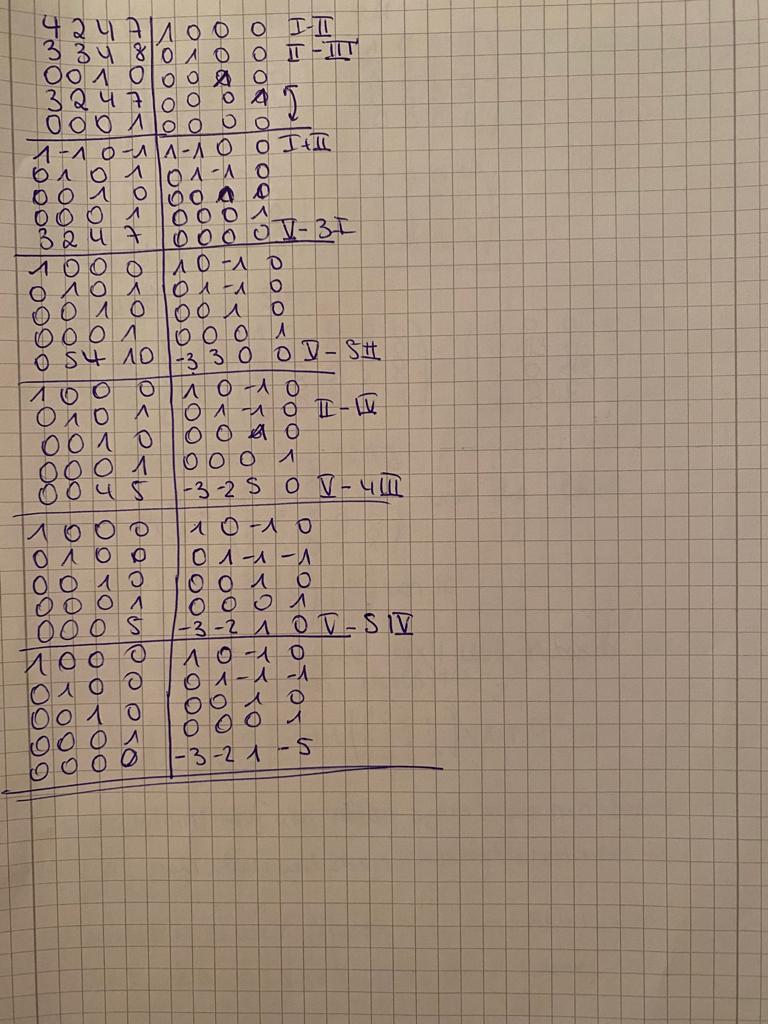 4 2 4 7 | 1 0 0 0 I-II
3 3 4 8 | 0 1 0 0 II-III
0 0 1 0 | 0 0 1 0
3 2 4 7 | 0 0 0 1
0 0 0 1 | 0 0 0 0
1 -1 0 -1 | 1 -1 0 0 I+II
0 1 0 1 | 0 1 -1 0
0 0 1 0 | 0 0 1 0
0 0 0 1 | 0 0 0 1
3 2 4 7 | 0 0 0 0 V-3I
1 0 0 0 | 1 0 -1 0
0 1 0 1 | 0 1 -1 0
0 0 1 0 | 0 0 1 0
0 0 0 1 | 0 0 0 1
0 5 4 10 | -3 3 0 0 V-5II
1 0 0 0 | 1 0 -1 0
0 1 0 1 | 0 1 -1 0 II-IV
0 0 1 0 | 0 0 1 0
0 0 0 1 | 0 0 0 1
0 0 4 5 | -3 -2 5 0 V-4III
1 0 0 0 | 1 0 -1 0
0 1 0 0 | 0 1 -1 -1
0 0 1 0 | 0 0 1 0
0 0 0 1 | 0 0 0 1
0 0 0 5 | -3 -2 1 0 V-5IV
1 0 0 0 | 1 0 -1 0
0 1 0 0 | 0 1 -1 -1
0 0 1 0 | 0 0 1 0
0 0 0 1 | 0 0 0 1
0 0 0 0 | -3 -2 1 -5